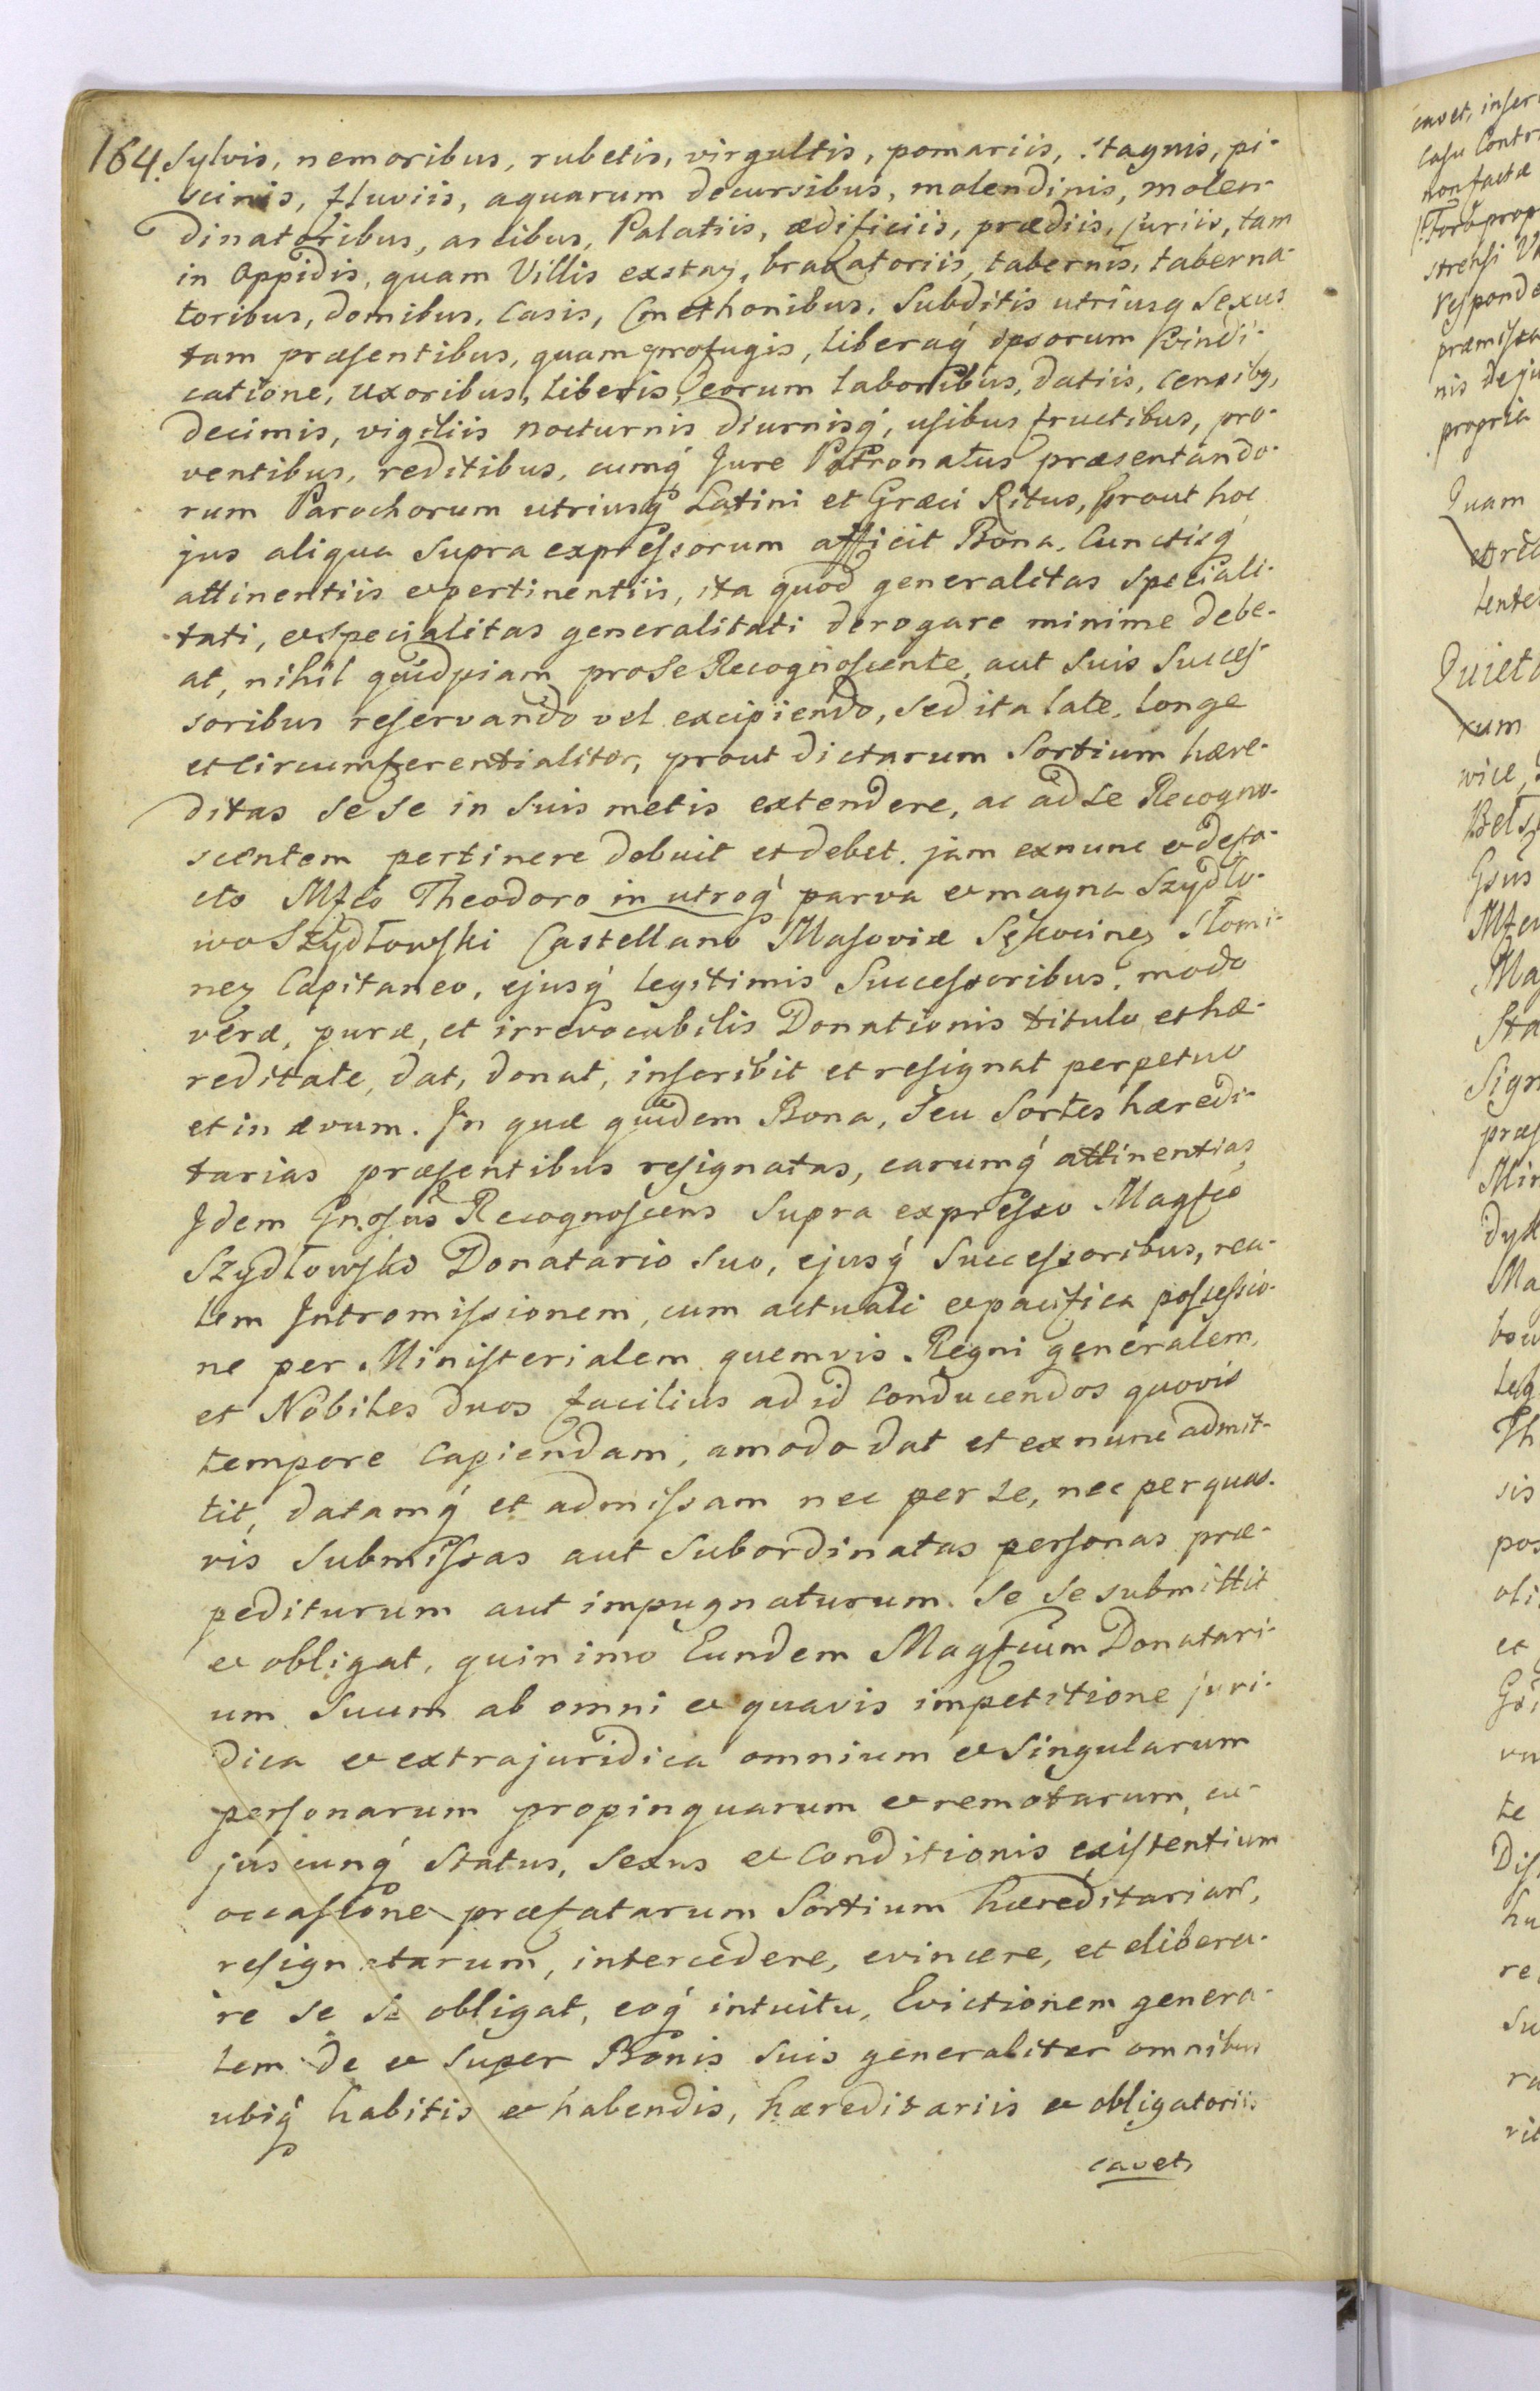 164. Sylvis, nemoribus, rubetis, virgultis, pomariis, Stagnis, pi-
scinis, fluviis, aquarum decursibus, molendinis, molen-
dinatoribus, arcibus, Palatiis, ædificiis, prædiis, Curiis, tam
in Oppidis, quam Villis exstaꝫ, braxatoriis, tabernis, taberna-
toribus, domibus, Casis, Cmethonibus, Subditis utriusq́ Sexus
tam præsentibus, quam profugis, liberaq́ ipsorum Vindi-
catione, Uxoribus, liberis, eorum laboribus, datiis, Censibꝫ,
decimis, vigiliis nocturnis diurnisq́, usibus fructibus, pro-
ventibus, reditibus, cumq́ Jure Patronatus præsentando-
rum Parochorum utriusq́ Latini et Græci Ritus, prout hoc
jus aliqua Supra expressorum afficit Bona, Cunctisq́
attinentiis et pertinentiis, ita quod generalitas Speciali-
tati, et Specialitas generalitati derogare minime debe-
at, nihil quidpiam pro Se Recognoscente, aut Suis Succes-
soribus reservando vel excipiendo, Sed ita late, longe
et Circumferentialiter, prout dictarum Sortium hære-
ditas Se Se in Suis metis extendere, ac ad Se Recogno-
scentem pertinere debuit et debet. jam exnunc et defa-
cto Mfco Theodoro in utroq́ parva et magna Szydło-
wo Szydłowski Castellano Masoviæ Sękocineꝫ Słomi-
neꝫ Capitaneo, ejusq́ legitimis Successoribus, modo
veræ, puræ, et irrevocabilis Donationis titulo, et hæ-
reditate, dat, donat, inscribit et resignat perpetuo
et in ævum. In quæ quidem Bona, Seu Sortes hæredi-
tarias præsentibus resignatas, earumq́ attinentias,
Idem Gnosus Recognoscens Supra expresso Magfco
Szydłowsko Donatario Suo, ejusq́ Successoribus, rea-
lem Intromissionem, cum actuali et pacifica possessio-
ne per Ministerialem quemvis Regni generalem,
et Nobiles duos facilius ad id Conducendos quovis
tempore Capiendam, amodo dat et exnunc admit-
tit, datamq́ et admissam nec per Se, nec per quas-
vis Submissas aut Subordinatas personas præ-
pediturum aut impugnaturum. Se Se submittit
et obligat, quinimo Eundem Magfcum Donatari-
um Suum ab omni et quavis impetitione juri-
dica et extrajuridica omnium et Singularum
personarum propinquarum et remotarum, cu-
juscunq́ Status, Sexus et Conditionis existentium
occasione præfatarum Sortium hæreditariar̄,
resignatarum, intercedere, evincere, et elibera-
re Se Se obligat, eoq́ intuitu, Evictionem genera-
lem de et Super Bonis Suis generaliter omnibus
ubiq́ habitis et habendis, hæreditariis et obligatoriis
cavet,
cavet, inser
Casu Contr
non factæ
Foro prop
strensi
responde
præmissa
nis de ju
propria
Quam
lente
Quiet
wice,
Gsus
Ma
Sta
Sign
præs
Min
dyst
Ma
Th
sis
pos
oli
et
te
Dis
hu
re
Su
ra
rit